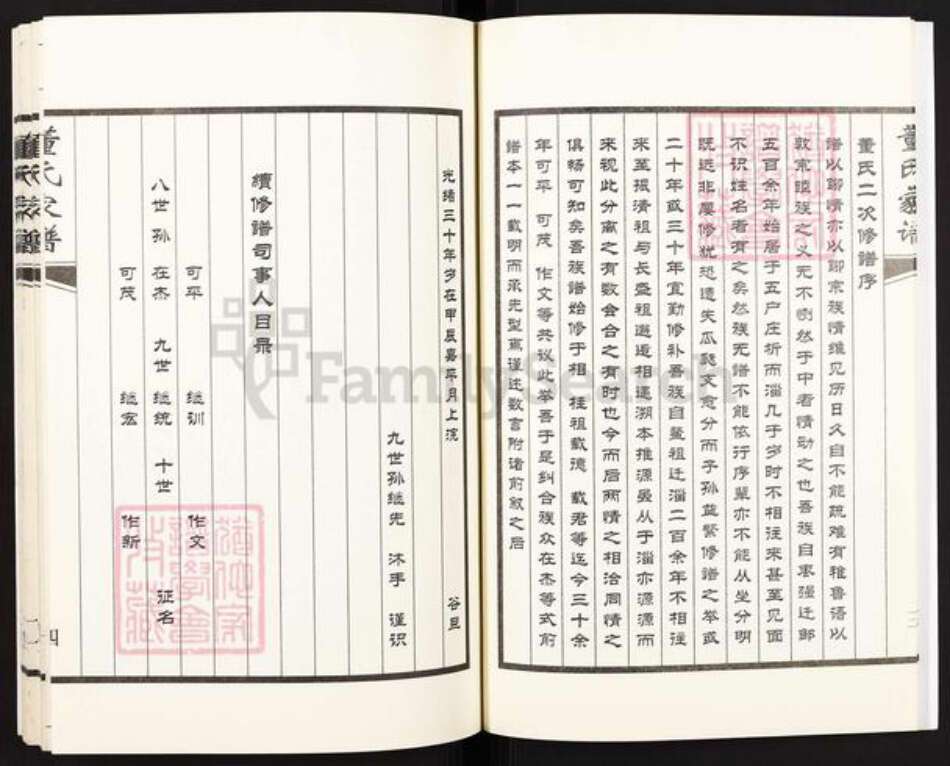 董氏家谱
董氏二次修譜序
譜以聊情亦以聊宗族情维见历日久自不能疏难有稚鲁语以
敦宗睦族之义无不恻然于中者情动之也吾族自枣强迁邮
五百余年始居于五户庄析而淄几于岁时不相往来甚至见面
不识姓名者有之矣然族无谱不能依行序辈亦不能从坐分明
既远非屡修犹恐遗失瓜瓞支愈分而子孙益繁修谱之举或
二十年或三十年宜勤修补吾族自 祖迁淄二百余年不相往
来至振清祖与长盛祖邂逅相遇溯本推源虽从于淄亦源源而
来视此分离之有数会合之有时也今而后两情之相洽同情之
俱畅可知矣吾族谱始修于相 桂祖载德 载君等迄今三十余
年可平 可茂 作文等共议此举吾于是纠合族众在杰等式前
谱本一一载明而承先型焉谨述数言附诸前叙之后
光绪三十年岁在甲辰嘉平月上浣 谷旦
九世孙继先 沐手 谨识
續修譜司事人目录
可平 继训 作文
八世孙 在杰 九世 继统 十世 征名
可茂 继宏 作新
四
董氏家譜
FamilySearch